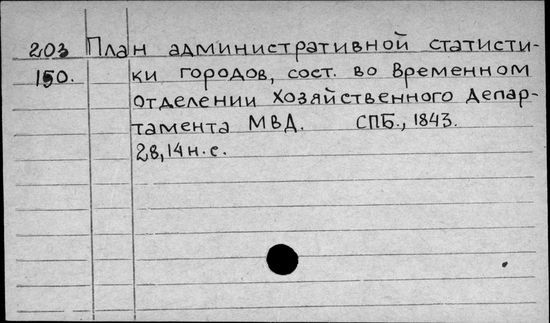 203 План административной статисти-
150. ки городов, сост. во Временном
Отделении Хозяйственного Депар-
тамента МВД. СПБ., 1843.
28, 14 н. с.